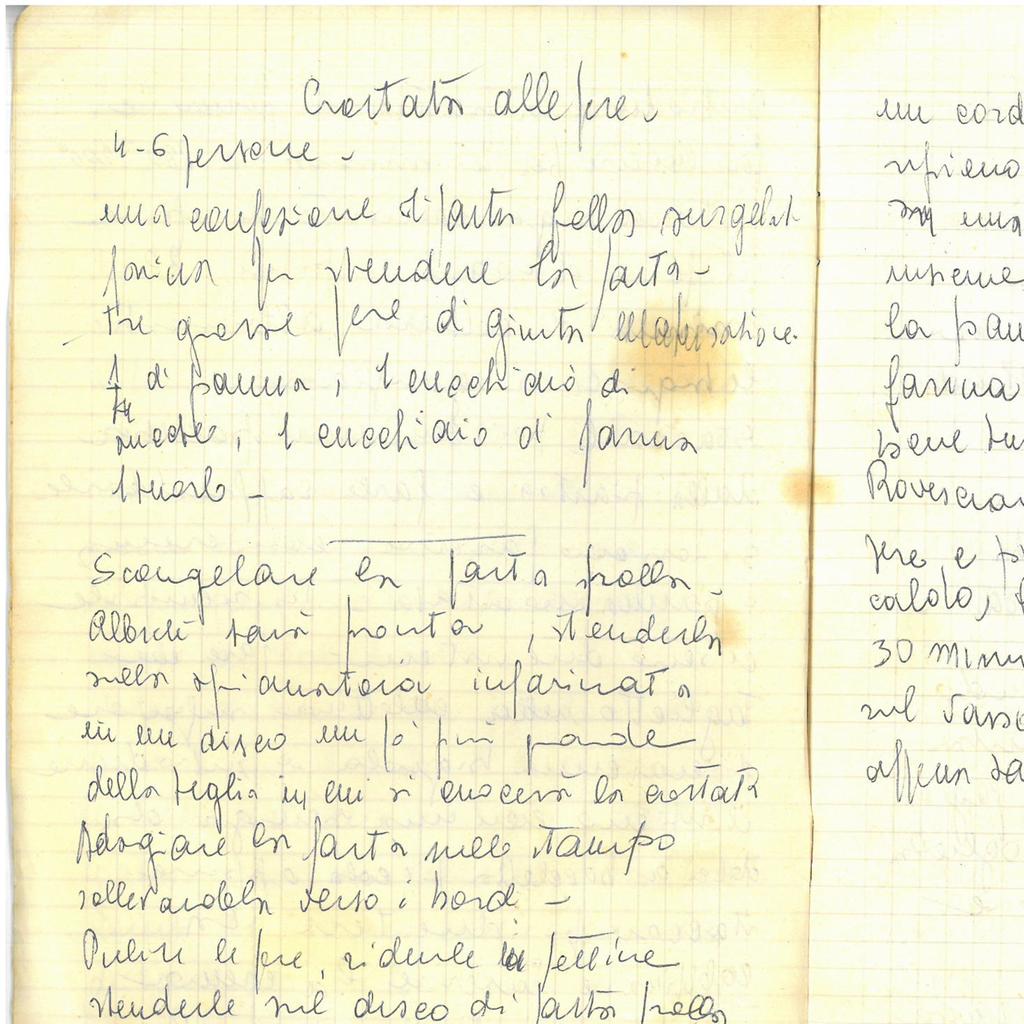 Crostata alle pere
4-6 persone -
una confezione di pasta frolla surgelat
farina per stendere la pasta -
tre grosse pere di giusta maturazione
1 di panna, 1 cucchiaio di
miele, 1 cucchiaio di farina
1 tuorlo -
Scongelare la pasta frolla -
Allorché sarà pronta, stenderla
sulla spianatoia infarinata
in un disco un pò più grande
della teglia in cui si cuocerà la crostata
Adagiare la pasta nello stampo
sollevandola verso i bordi -
Pulire le pere, ridurle a fettine
stenderle sul disco di pasta frolla
un cord
ripieno
una
insieme
la pan
farina
bene tu
Rovescian
pere e p
caldo,
30 minu
sul vass
appena sa